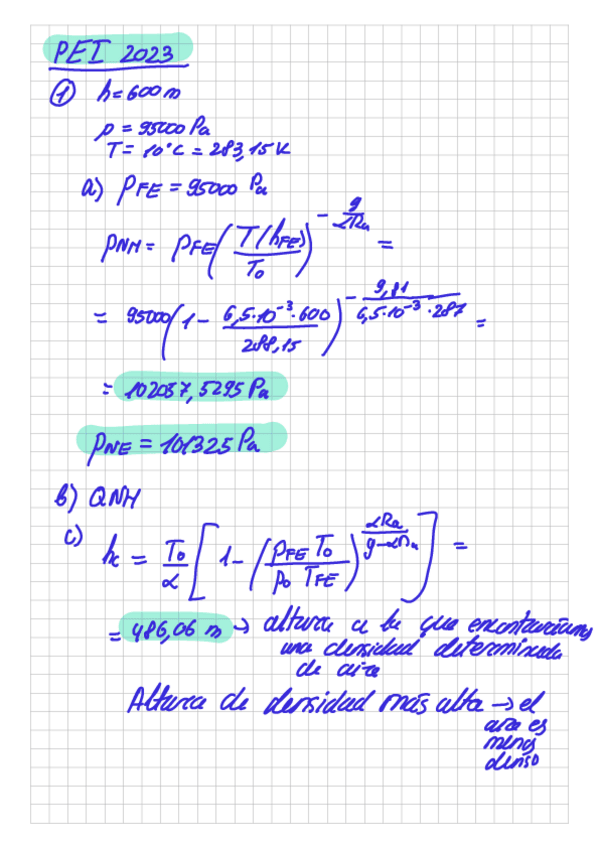 PEI 2023
① h = 600 m
p = 95000 Pa
T = 10°C = 283,15 K
a) pFE = 95000 Pa
pNH = pFE (T(hFE)/T0)^(-g/αRa) =
= 95000 (1 - 6,5·10^-3·600/288,15)^(-9,81/6,5·10^-3·287) =
= 102037,5295 Pa
pNE = 101325 Pa
b) QNH
c) hc = T0/α [1 - (pFE T0/p0 TFE)^(αRa/g-αRa)] =
= 486,06 m → altura a la que encontraríamos
una densidad determinada
de aire
Altura de densidad más alta → el
aire es
menos
denso